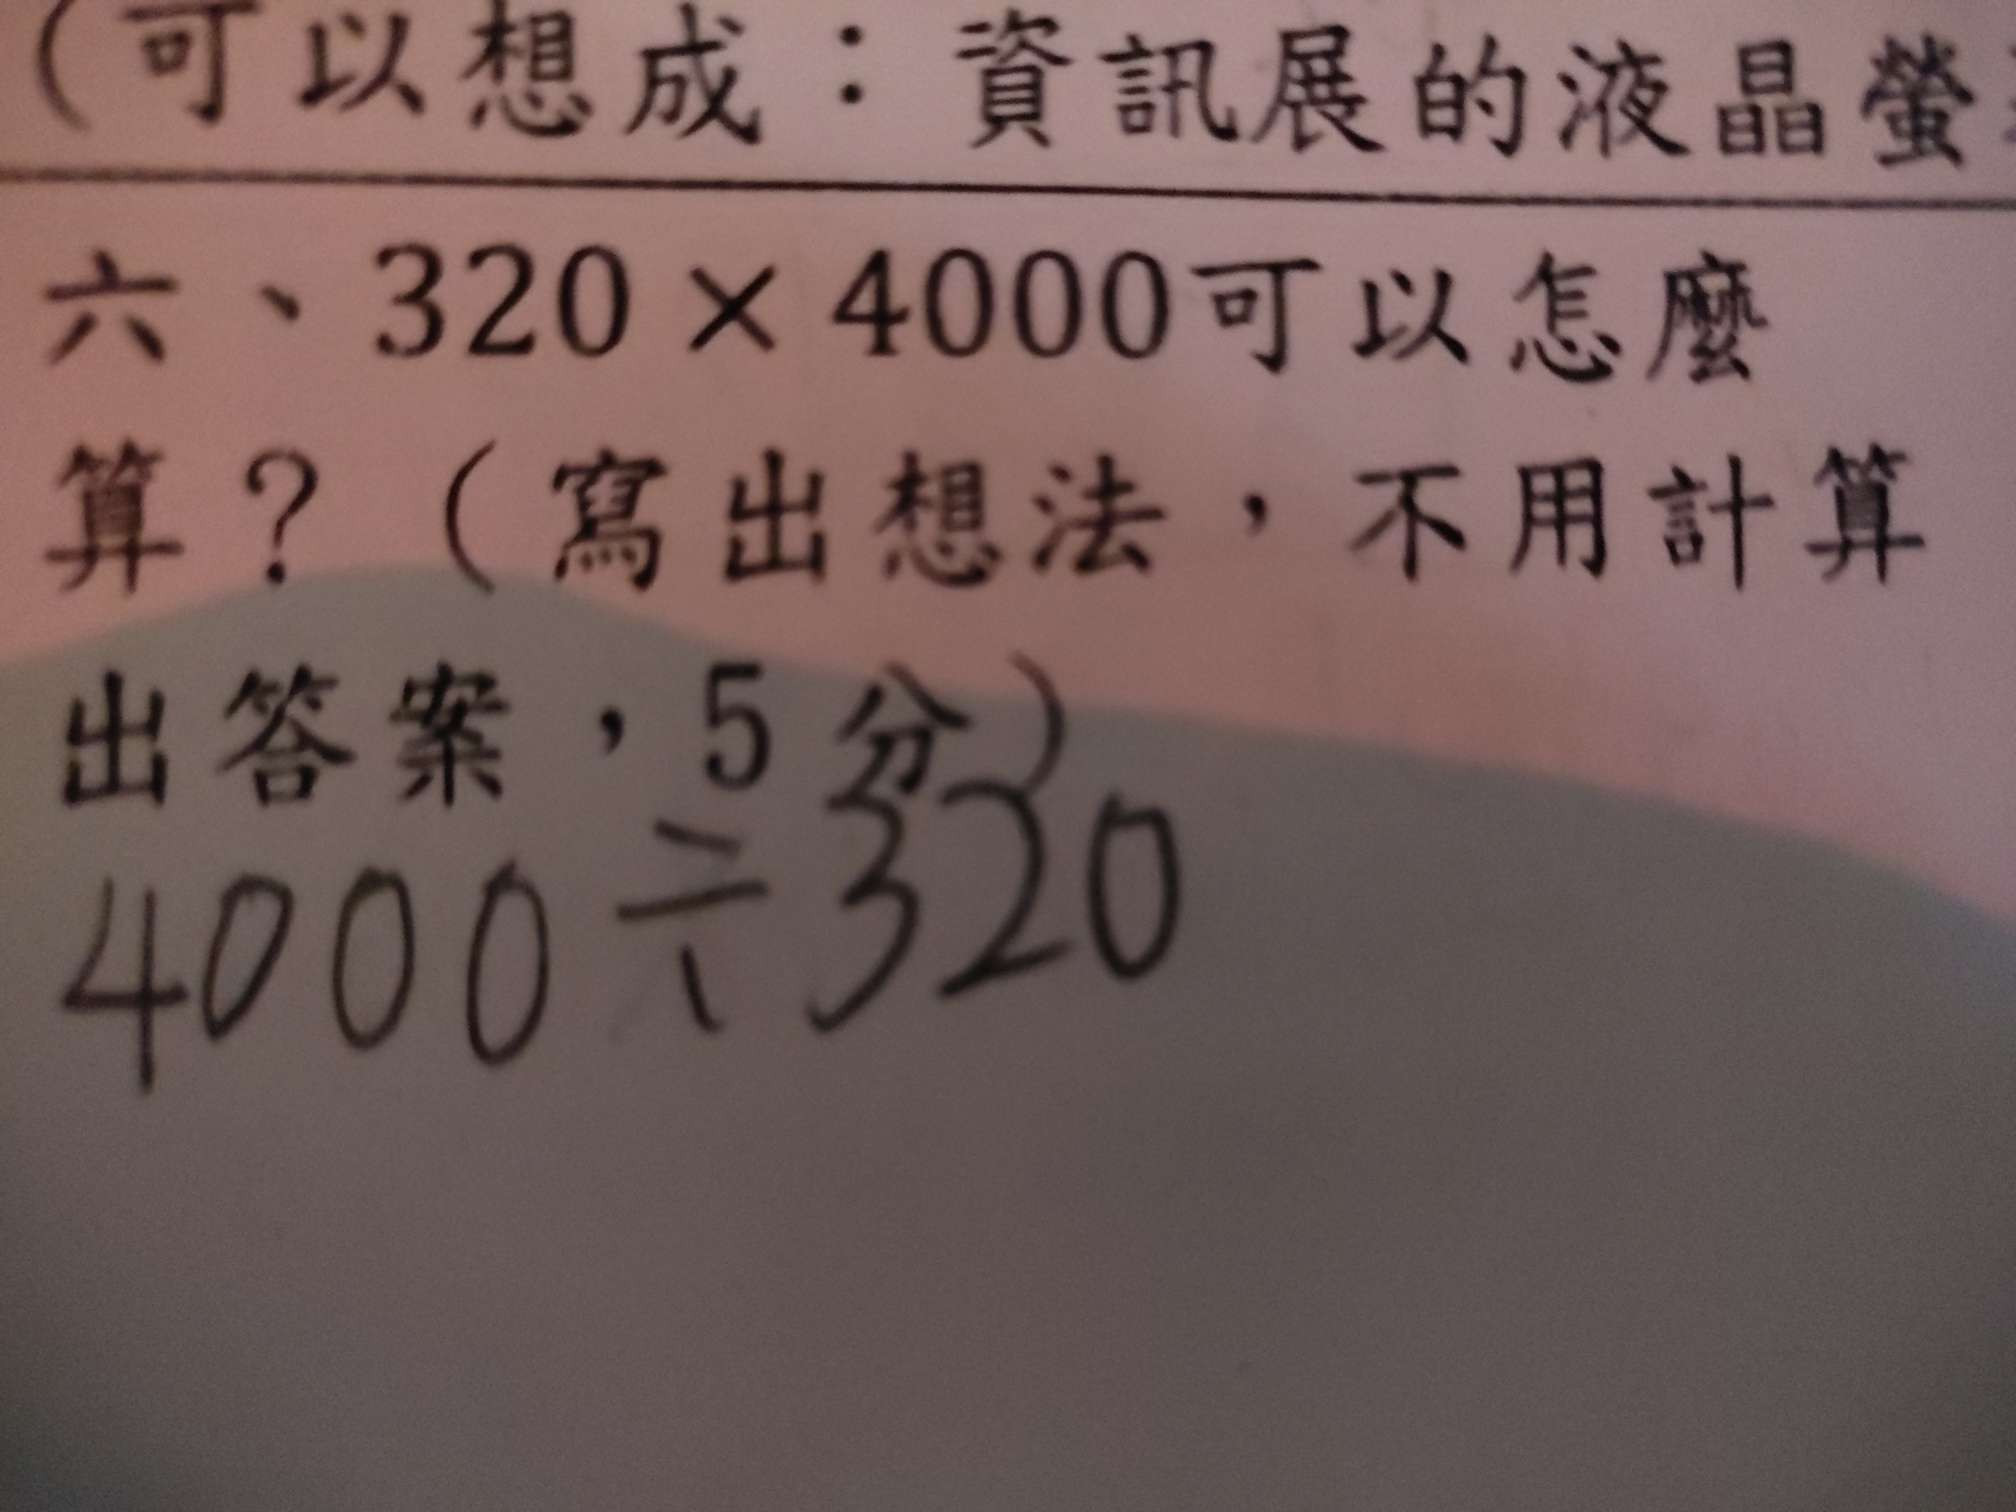 (可以想成：資訊展的液晶螢
六、320 × 4000可以怎麼
算？(寫出想法，不用計算
出答案，5 分)
4000 ÷ 320